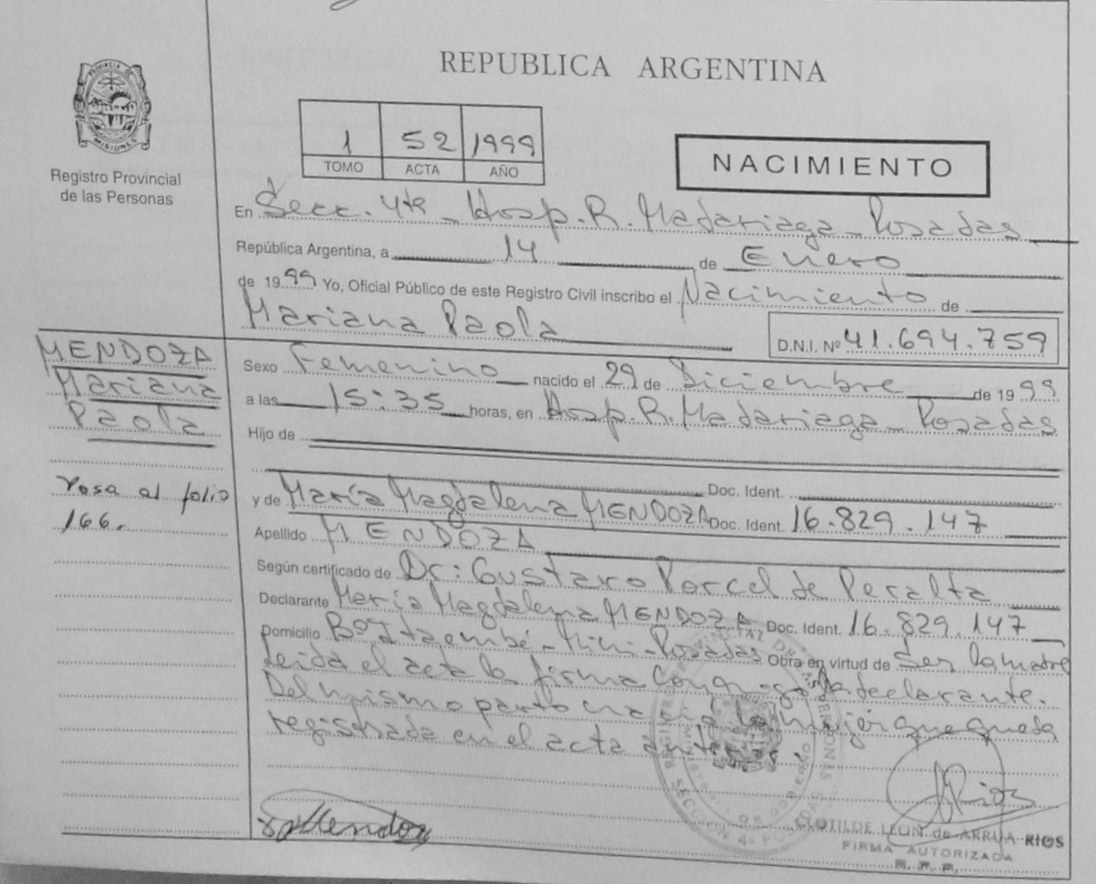 REPUBLICA ARGENTINA
PROVINCIA DE
MISIONES
Registro Provincial
de las Personas
1 52 1999
TOMO ACTA AÑO
NACIMIENTO
En Secc. 4ta - Hosp. R. Madariaga - Posadas
República Argentina, a 14 de Enero
de 1999 Yo, Oficial Público de este Registro Civil inscribo el Nacimiento de
Mariana Paola
D.N.I. Nº 41.694.759
MENDOZA
Mariana
Paola
Pasa al folio
166.
Sexo Femenino nacido el 29 de Diciembre de 1999
a las 15:35 horas, en Hosp. R. Madariaga - Posadas
Hijo de
Doc. Ident.
y de María Magdalena MENDOZA Doc. Ident. 16.829.147
Apellido MENDOZA
Según certificado de Dr: Gustavo Porcel de Peralta
Declarante María Magdalena MENDOZA Doc. Ident. 16.829.147
Domicilio Bº Itaembé - Miní - Posadas Obra en virtud de Ser la madre
Leida el acta la firma la declarante.
Del mismo parto nació la mujer que queda
registrada en el acta anterior.
Mendoza
Rios
CLOTILDE LEON de ARRUA RIOS
FIRMA AUTORIZADA
R. P. P.